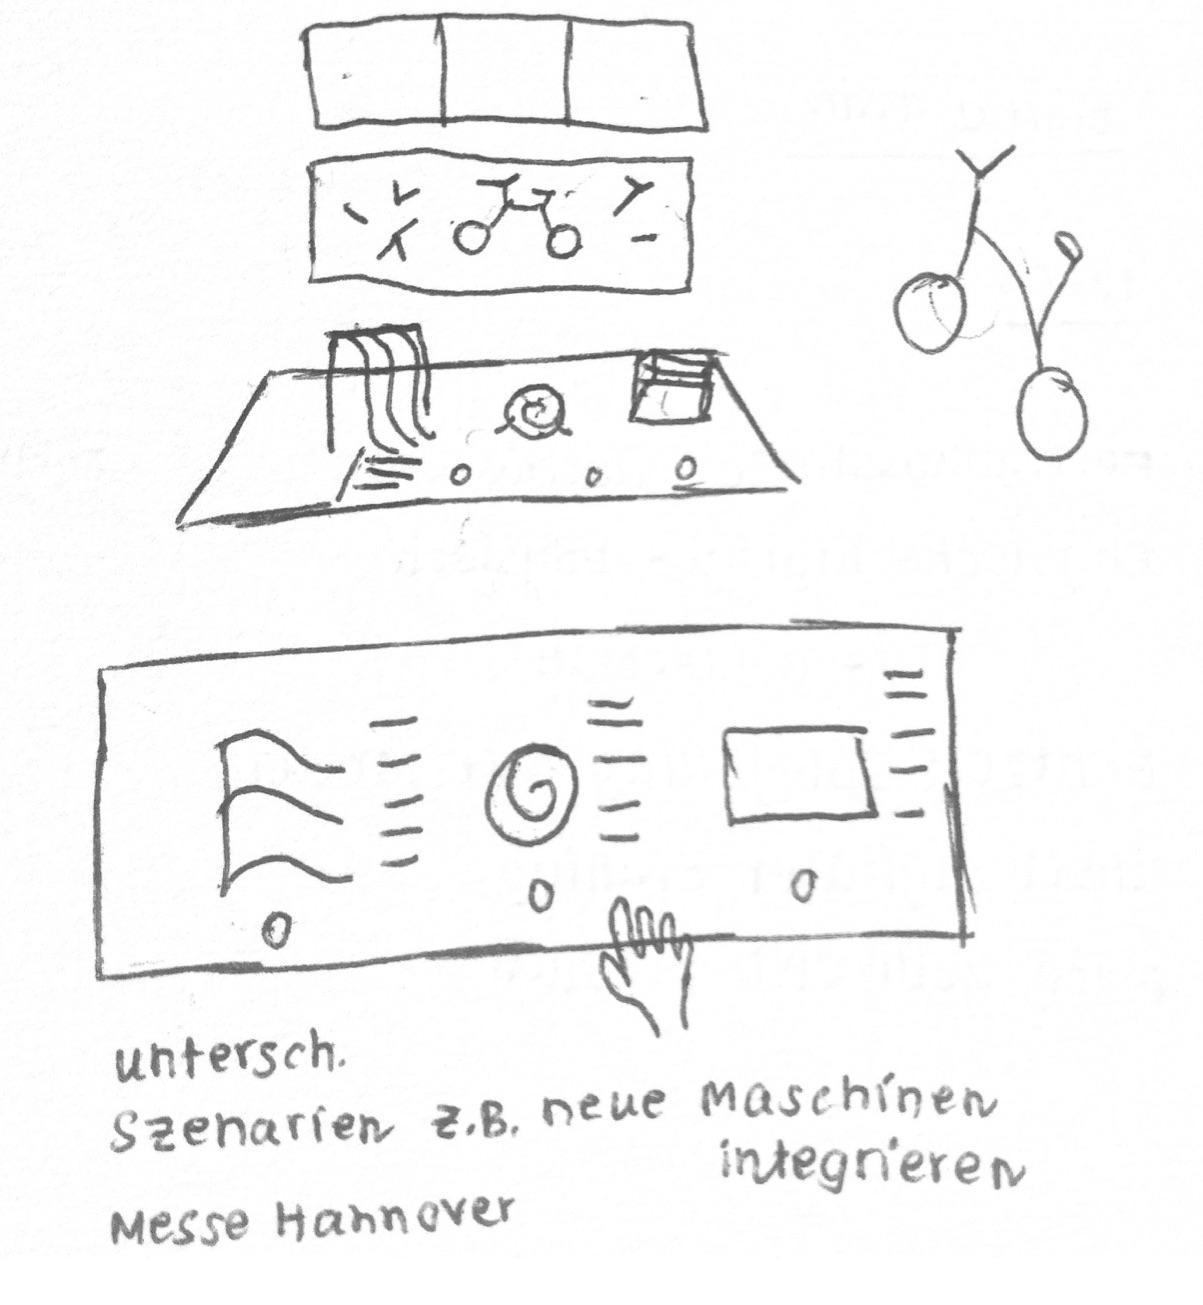 untersch.
Szenarien z.B. neue Maschinen
integrieren
Messe Hannover